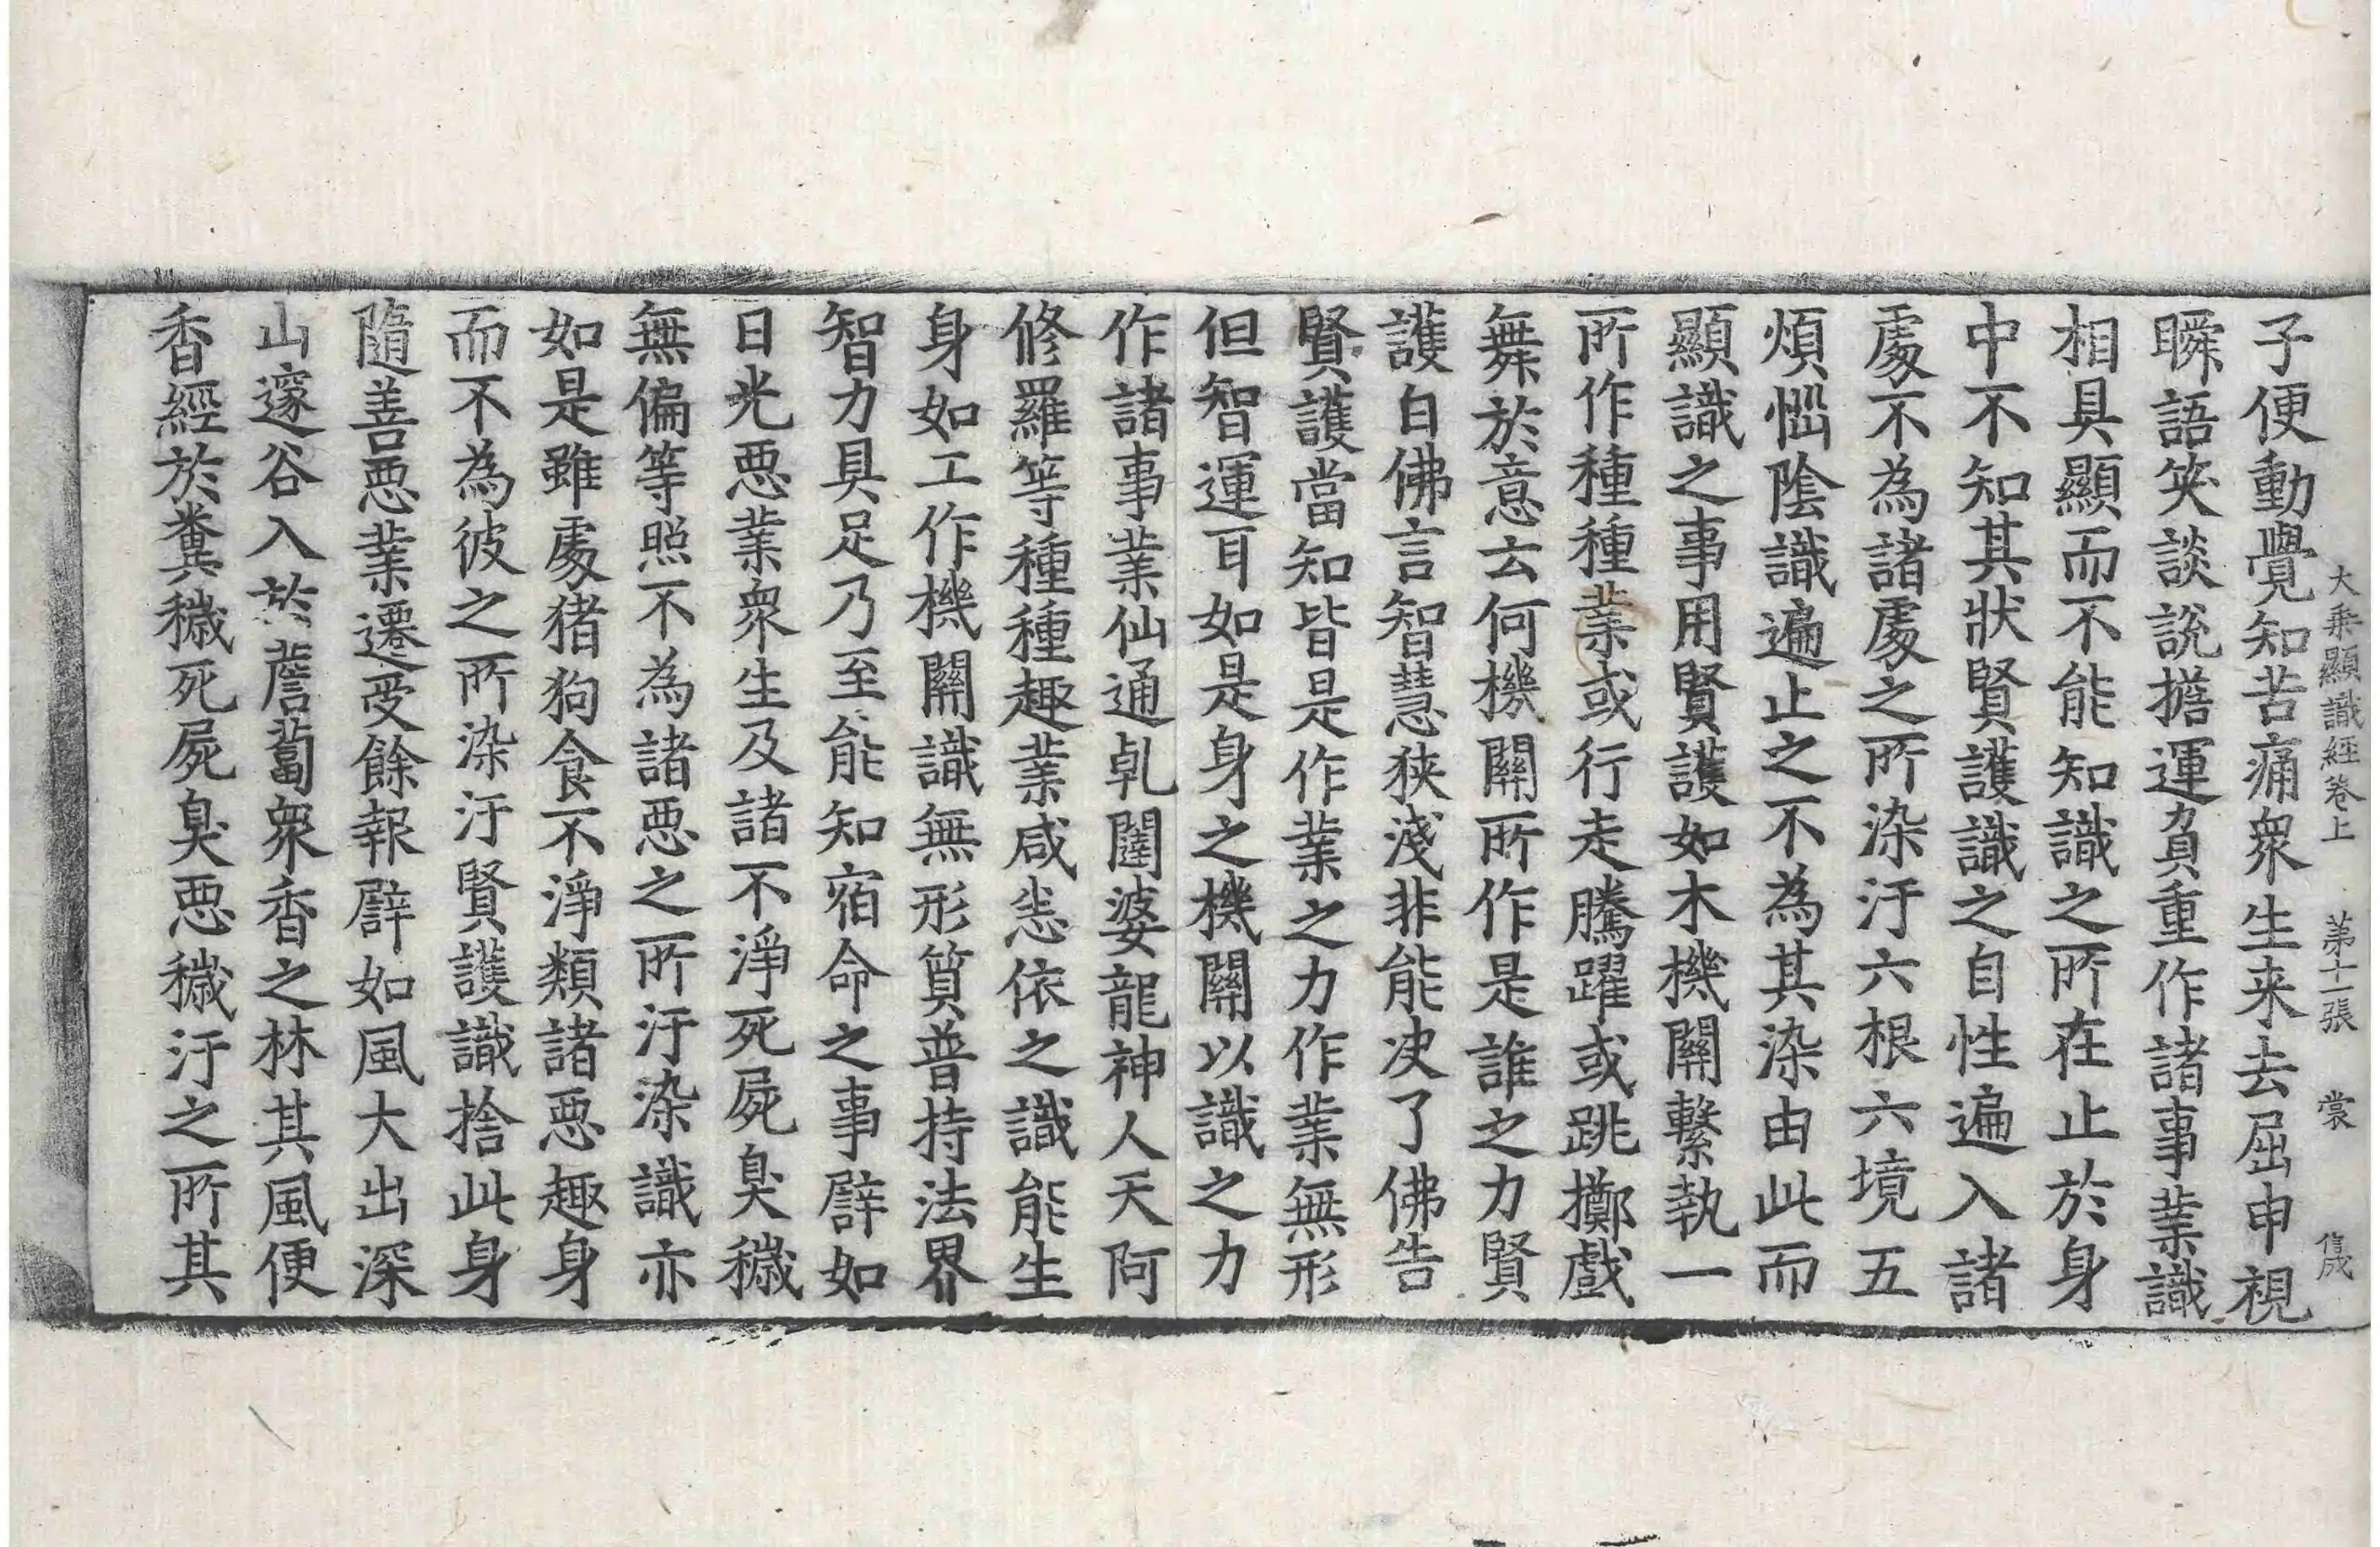 大乗顯識經卷上　第十一張　裳　㒷
子便動覺知苦痛衆生来去屈申視
瞬語笑談說擔運負重作諸事業識
相具顯而不能知識之所在止於身
中不知其狀賢護識之自性遍入諸
處不為諸處之所染汙六根六境五
煩惱陰識遍止之不為其染由此而
顯識之事用賢護如木機關繫執一
所作種種業或行走騰躍或跳擲戲
舞於意云何機關所作是誰之力賢
護白佛言智慧狹淺非能决了佛告
賢護當知皆是作業之力作業無形
但智運耳如是身之機關以識之力
作諸事業仙通乹闥婆龍神人天阿
修羅等種種趣業咸恙依之識能生
身如工作機關識無形質普持法界
智力具足乃至能知宿命之事譬如
日光惡業衆生及諸不淨死屍臭穢
無偏等照不為諸惡之所汙染識亦
如是雖處猪狗食不淨類諸惡趣身
而不為彼之所染汙賢護識捨此身
隨善惡業遷受餘報譬如風大出深
山邃谷入於薝蔔衆香之林其風便
香經於糞穢死屍臭惡穢汙之所其